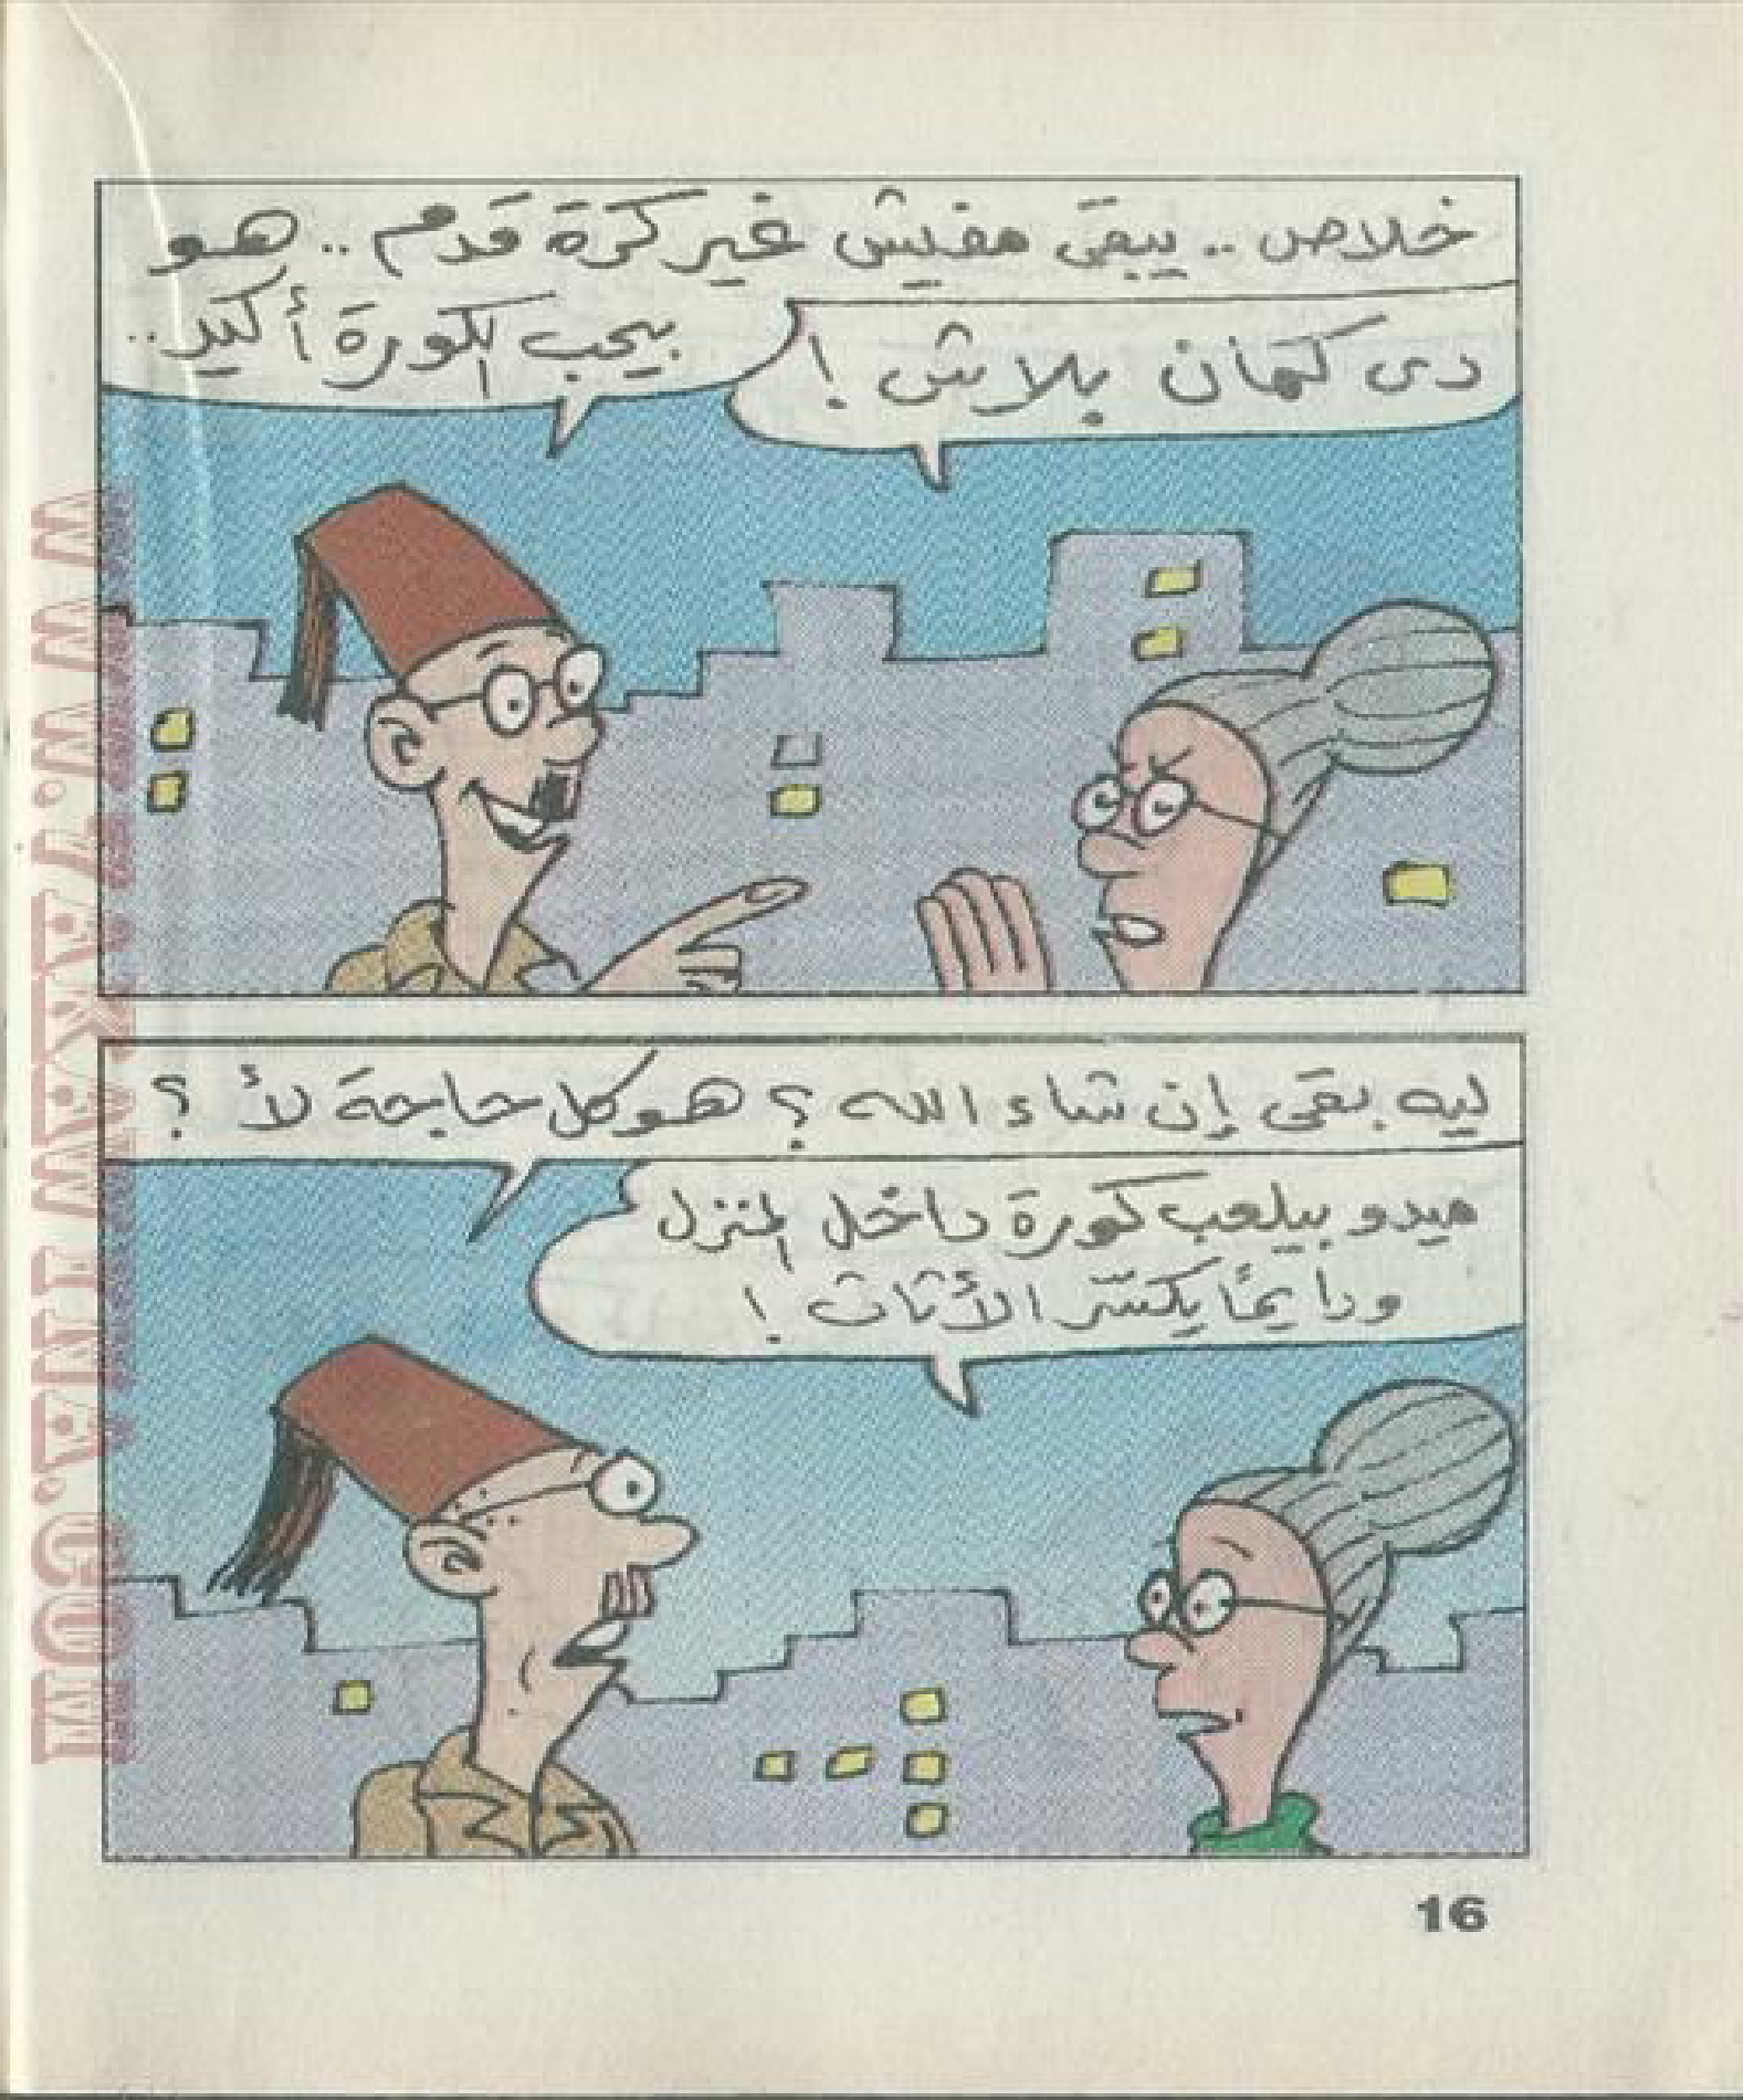 خلاص .. يبقى مفيش غير كرة قدم .. هو
بيحب الكورة أكيد ..
دى كمان بلاش !
ليه بقى إن شاء الله ؟ هو كل حاجة لأ ؟
ميدو بيلعب كورة داخل المنزل
ودايمًا يكسّر الأثاث !
16